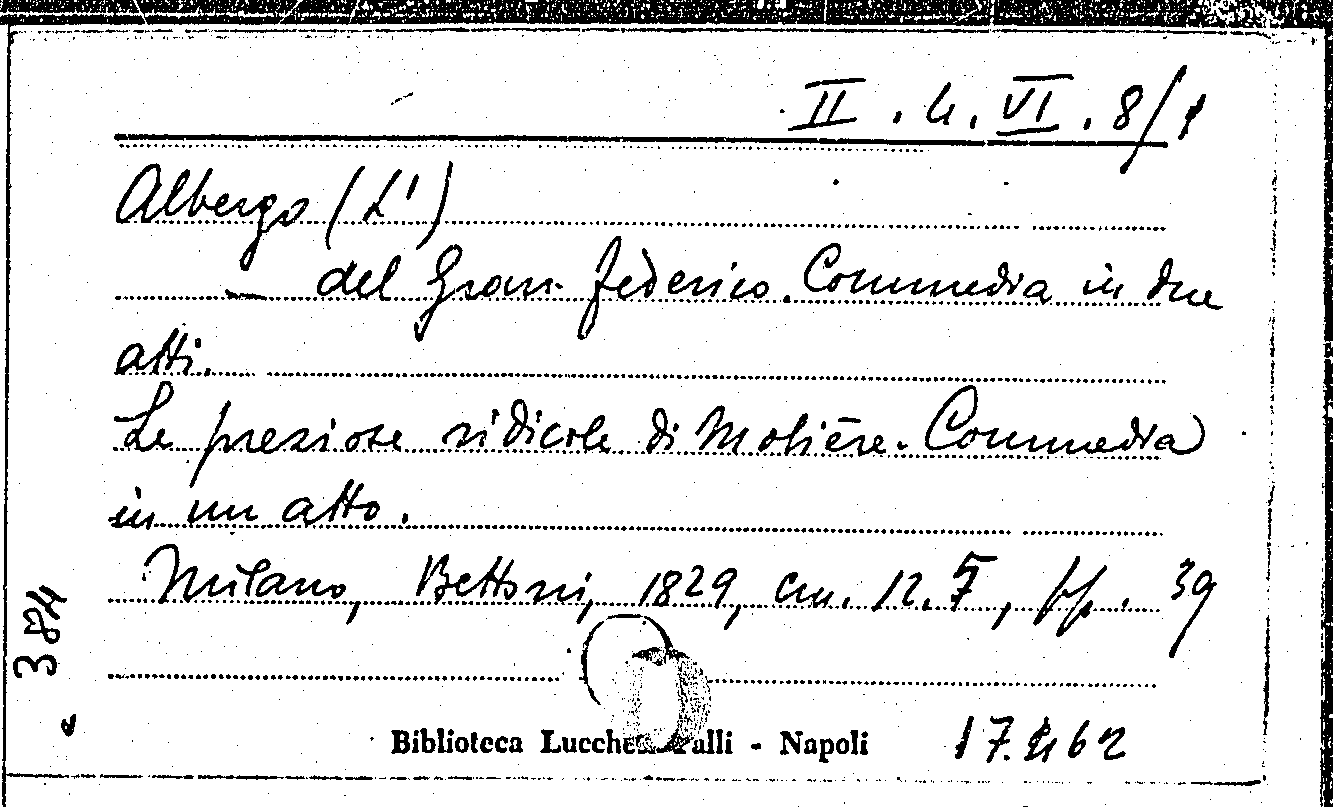 II. 4. VI. 8/1
Albergo (L')
— del Gran Federico. Commedia in due
atti.
Le preziose ridicole di Molière. Commedia
in un atto.
Milano, Bettoni, 1829, cm. 12.5, pp. 39
384
Biblioteca Lucchesi Palli - Napoli